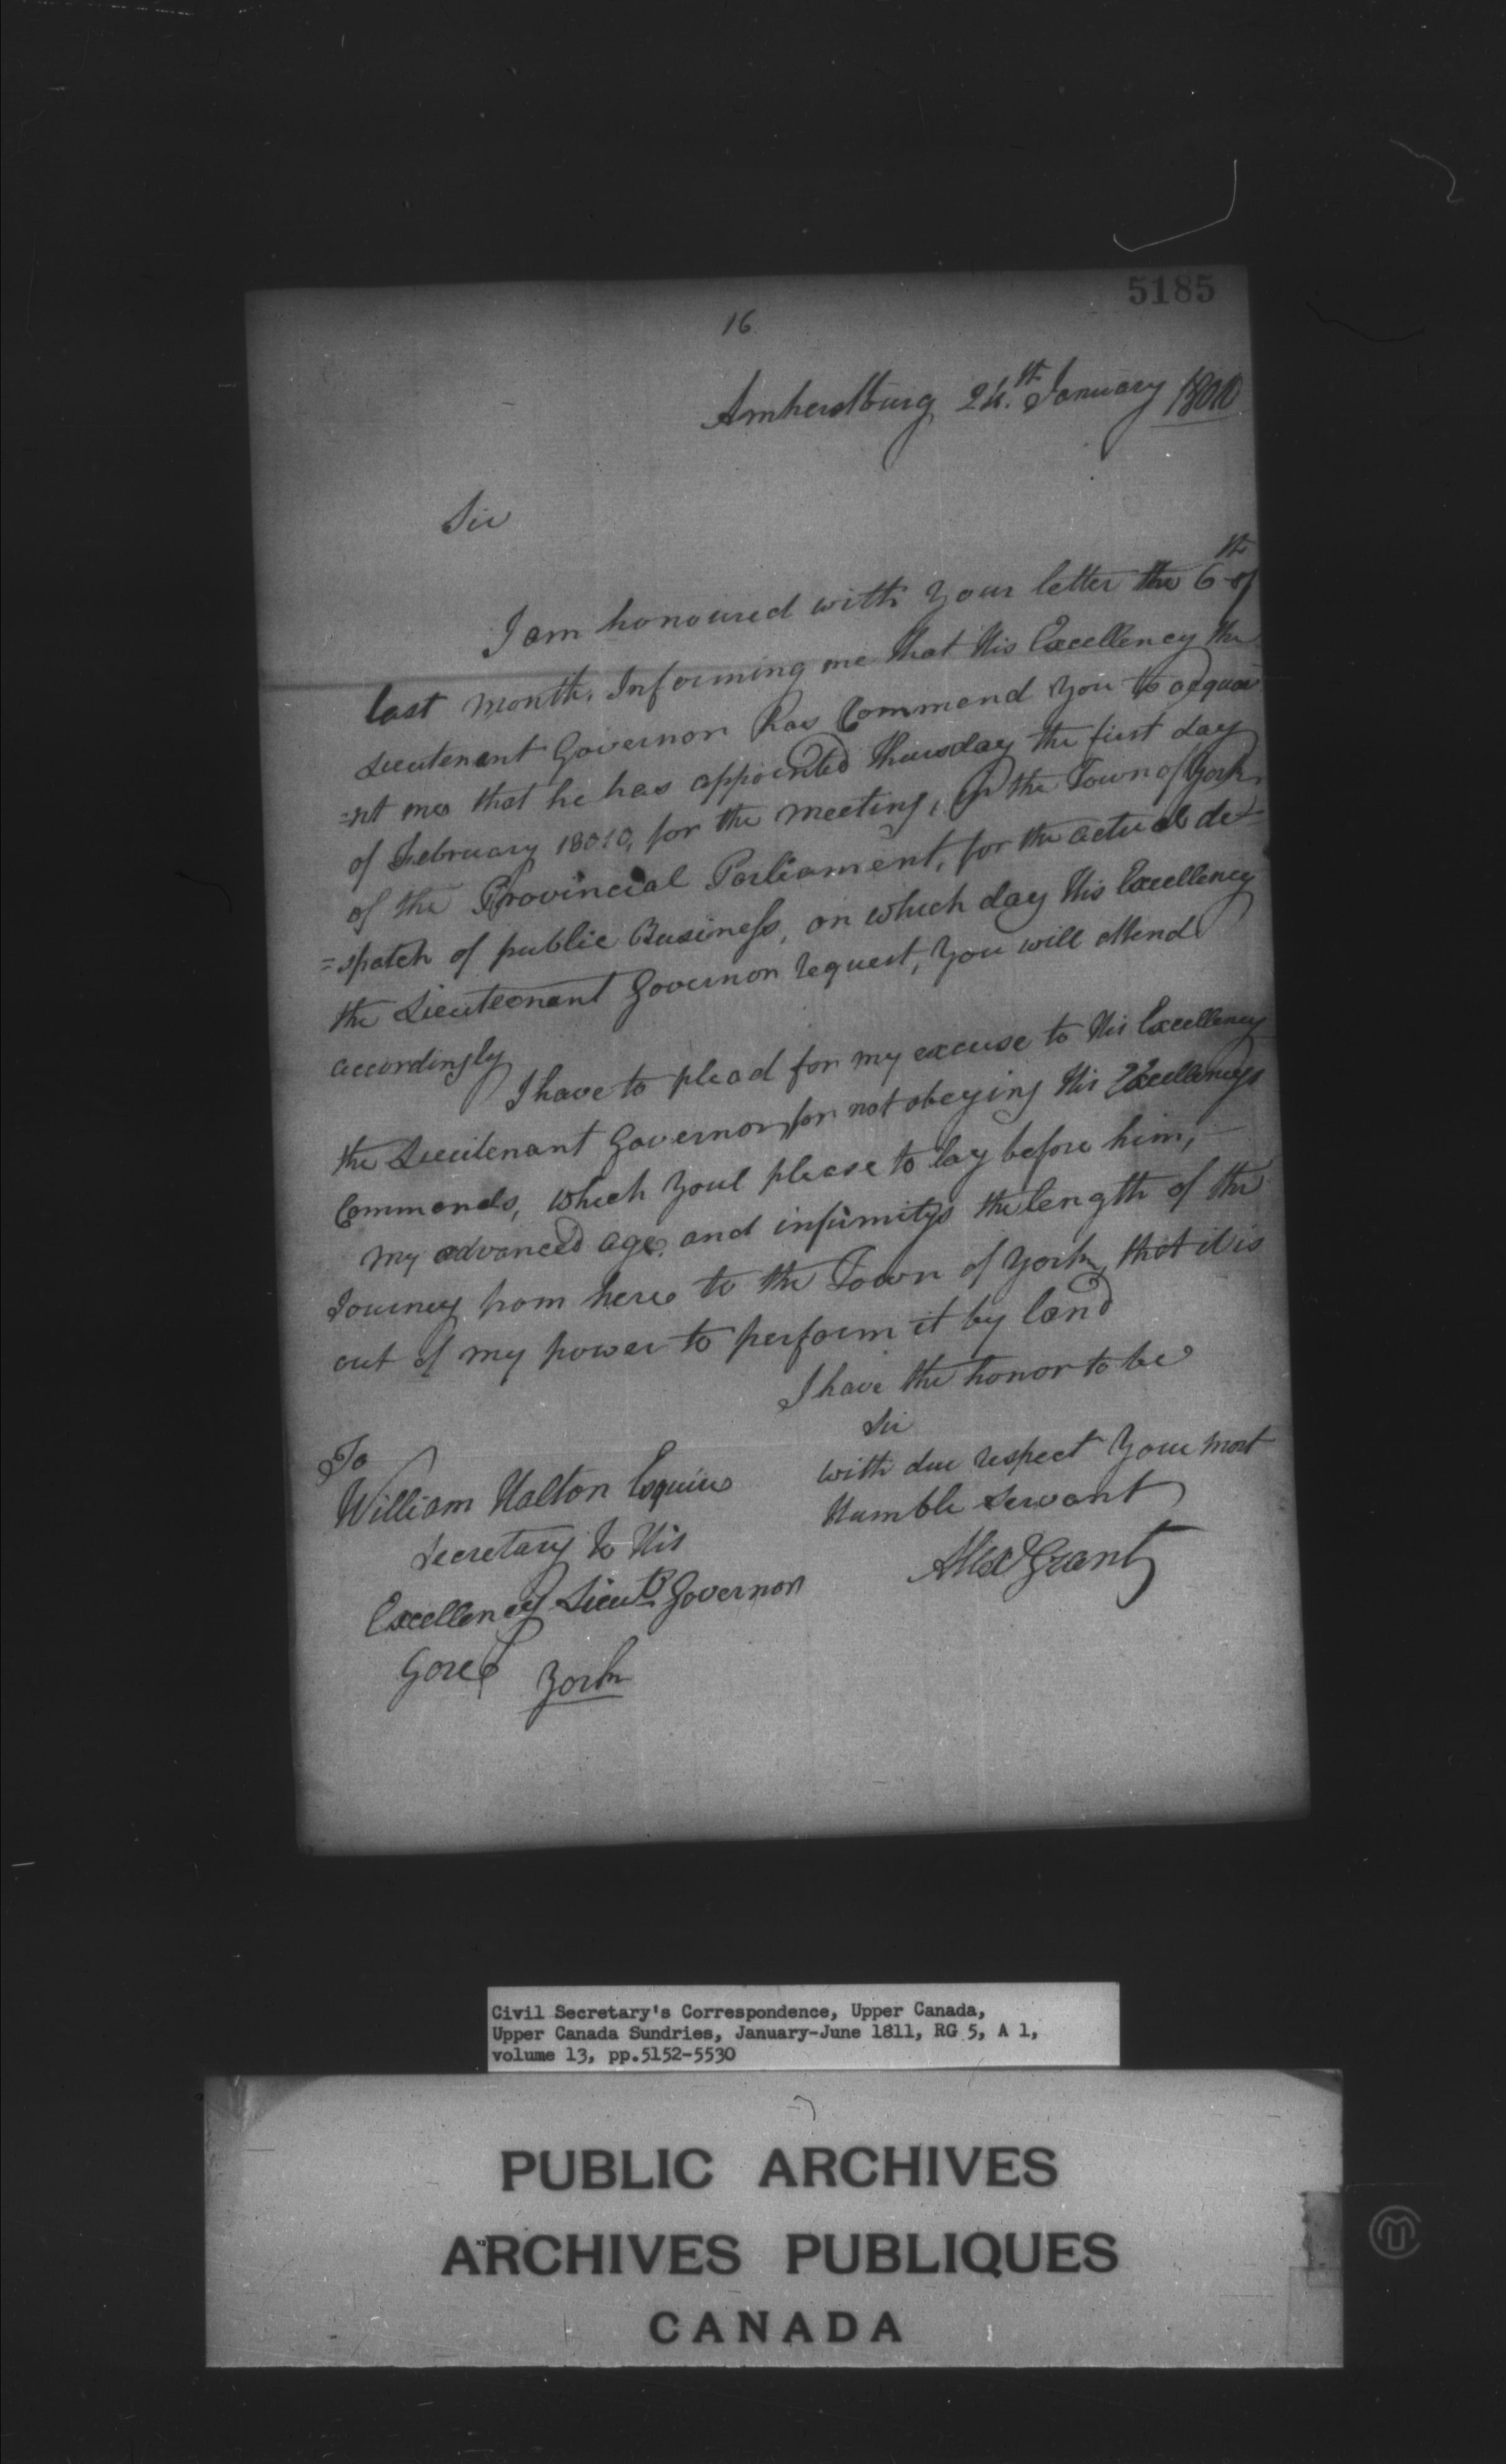 5185
16
Amherstburg 24.th January 18010
Sir
I am honoured with your letter the 6th of
last month. Informing me that His Excellency the
Lieutenant Governor has Command you to acquai
=nt me that he has appointed Thursday the first day
of February 18010, for the meeting, in the Town of York
of the Provincial Parliament, for the actual de-
=spatch of public Business, on which day His Excellency
the Lieutenant Governor request, you will attend
accordingly
I have to plead for my excuse to His Excellency
the Lieutenant Governor, for not obeying His Excellencys
Commands, which youl please to lay before him,
my advanced age. and infirmitys the length of the
Journey from here to the Town of York, that it is
out of my power to perform it by land
I have the honor to be
Sir
with due respect your most
Humble Servant
Alexr Grant
To
William Halton Esquire
Secretary to His
Excellency Lieut. Governor
Gore
York
Civil Secretary's Correspondence, Upper Canada,
Upper Canada Sundries, January-June 1811, RG 5, A 1,
volume 13, pp.5152-5530
PUBLIC ARCHIVES
ARCHIVES PUBLIQUES
CANADA